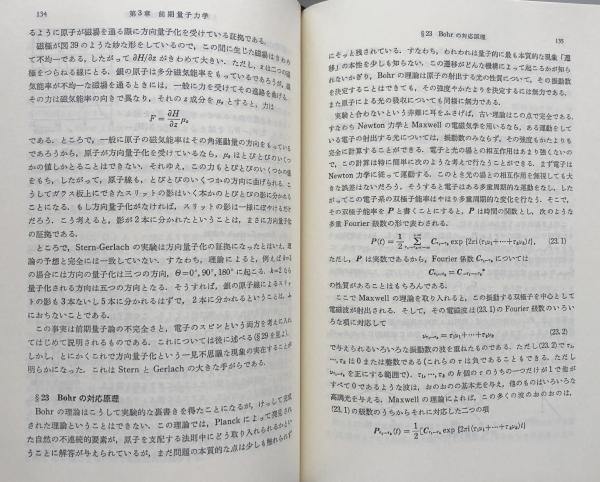 134 第3章 前期量子力学
るように原子が磁場を通る際に方向量子化を受けている証拠である.
磁極が図39のような妙な形をしているので, この間に生じた磁場はきわめ
て不均一である. したがって ∂H/∂z がきわめて大きい. ただし, z は二つの磁
極をつらねる線にとる. 銀の原子は多分磁気能率をもっているであろうが, 磁
気能率が不均一な磁場を通るときには, 一般に力を受けてその進路を曲げる.
その力は磁気能率の向きで異なり, それの z 成分を μz とすると, 力は
F = ∂H/∂z μz
である. ところで, 一般に原子の磁気能率はその角運動量の方向をもっている
であろうから, 原子が方向量子化を受けているなら, μz はとびとびのいくつ
かの値しかとることはできない. それゆえ, この力もとびとびのいくつかの値
をもち, したがって, 原子線も, とびとびのいくつかの方向に曲げられる. こ
うしてガラス板上にできたスリットの影はいく本かのとびとびの影に分かれる
ことになる. もし方向量子化がなければ, スリットの影は一様にぼやけるだけ
だろう. こう考えると, 影が2本に分かれたということは, まさに方向量子化
の証拠である.
ところで, Stern-Gerlach の実験は方向量子化の証拠にはなったとはいえ, 理
論の予想と完全には一致していない. すなわち, 理論によると, 例えば k=1
の場合には方向の量子化は三つの方向, Θ=0°, 90°, 180° に起こる. k=2 なら
量子化される方向は五つの方向となる. そうすれば, 銀の原子線によるスリッ
トの影も3本ないし5本に分かれるはずで, 2本に分かれるということは, ふ
におちないことである.
この事実は前期量子論の不完全さと, 電子のスピンという両方を考えに入れ
てはじめて説明されるものである. これについては後に述べる (§29を見よ).
しかし, とにかくこれで方向量子化という一見不思議な現象の実在することが
明らかになった. これは Stern と Gerlach の大きな手がらである.
§23 Bohr の対応原理
Bohr の理論はこうして実験的な裏書きを得たことになるが, けっして完成
された理論ということはできない. この理論では, Planck によって発見され
た自然の不連続的要素が, 原子を支配する法則中にどう取り入れられるかとい
うことに解答が与えられているが, まだ問題の本質的な点は少しも触れられず
§23 Bohr の対応原理 135
にそっと残されている. すなわち, われわれは量子的に最も本質的な現象「遷
移」の本性を少しも知らない. この遷移がどんな機構によって起こるかが知ら
れないかぎり, Bohr の理論は原子の射出する光の性質について, その振動数
を決定することはできても, その強度やかたよりを決定するには無力である.
また原子による光の吸収についても同様に無力である.
実験と合わないという弁難に耳をふさげば, 古い理論はこの点で完全である.
すなわち Newton 力学と Maxwell の電磁気学を用いるなら, ある運動をして
いる電子の射出する光については, 振動数のみならず, その強度もかたよりも
完全に計算することができる. 電子と光の場との相互作用はあまり強くないの
で, この計算は特に簡単に次のような考えで行なうことができる. まず電子は
Newton 力学に従って運動する. このとき光の場との相互作用を無視しても大
きな誤差はないだろう. そうすると電子はある多重周期的な運動をなし, した
がってこの電子系の双極子能率はやはり多重周期的な変化を行なう. そこで,
その双極子能率を P と書くことにすると, P は時間の関数とし, 次のような
多重 Fourier 級数の形で表わされる.
P(t) = 1/2 Σ Cτ₁…τₖ exp {2πi(τ₁ν₁+⋯+τₖνₖ)t}, (23.1)
ただし, P は実数であるから, Fourier 係数 Cτ₁…τₖ については
Cτ₁…τₖ = C−τ₁…−τₖ*
の性質があることはもちろんである.
ここで Maxwell の理論を取り入れると, この振動する双極子を中心として
電磁波が射出される. そして, その電磁波は (23.1) の Fourier 級数のいろい
ろな項に対応して
ντ₁…τₖ = τ₁ν₁+⋯+τₖνₖ (23.2)
で与えられるいろいろな振動数の波を重ねたものである. ただし (23.2) で τ₁,
…, τₖ は 0 または整数である (これらの τ は負であることもできる. ただし
ντ₁…τₖ を正にする範囲で). τ₁, …, τₖ の k 個の τ のうちの一つだけが 1 で他が
すべて 0 であるような波は, おのおのの基本光を与え, 他のものはいろいろな
高調光を与える. Maxwell の理論によれば, この多くの波のおのおのは,
(23.1) の級数のうちからそれに対応した二つの項
Pτ₁…τₖ(t) = 1/2 [Cτ₁…τₖ exp {2πi(τ₁ν₁+⋯+τₖνₖ)t}